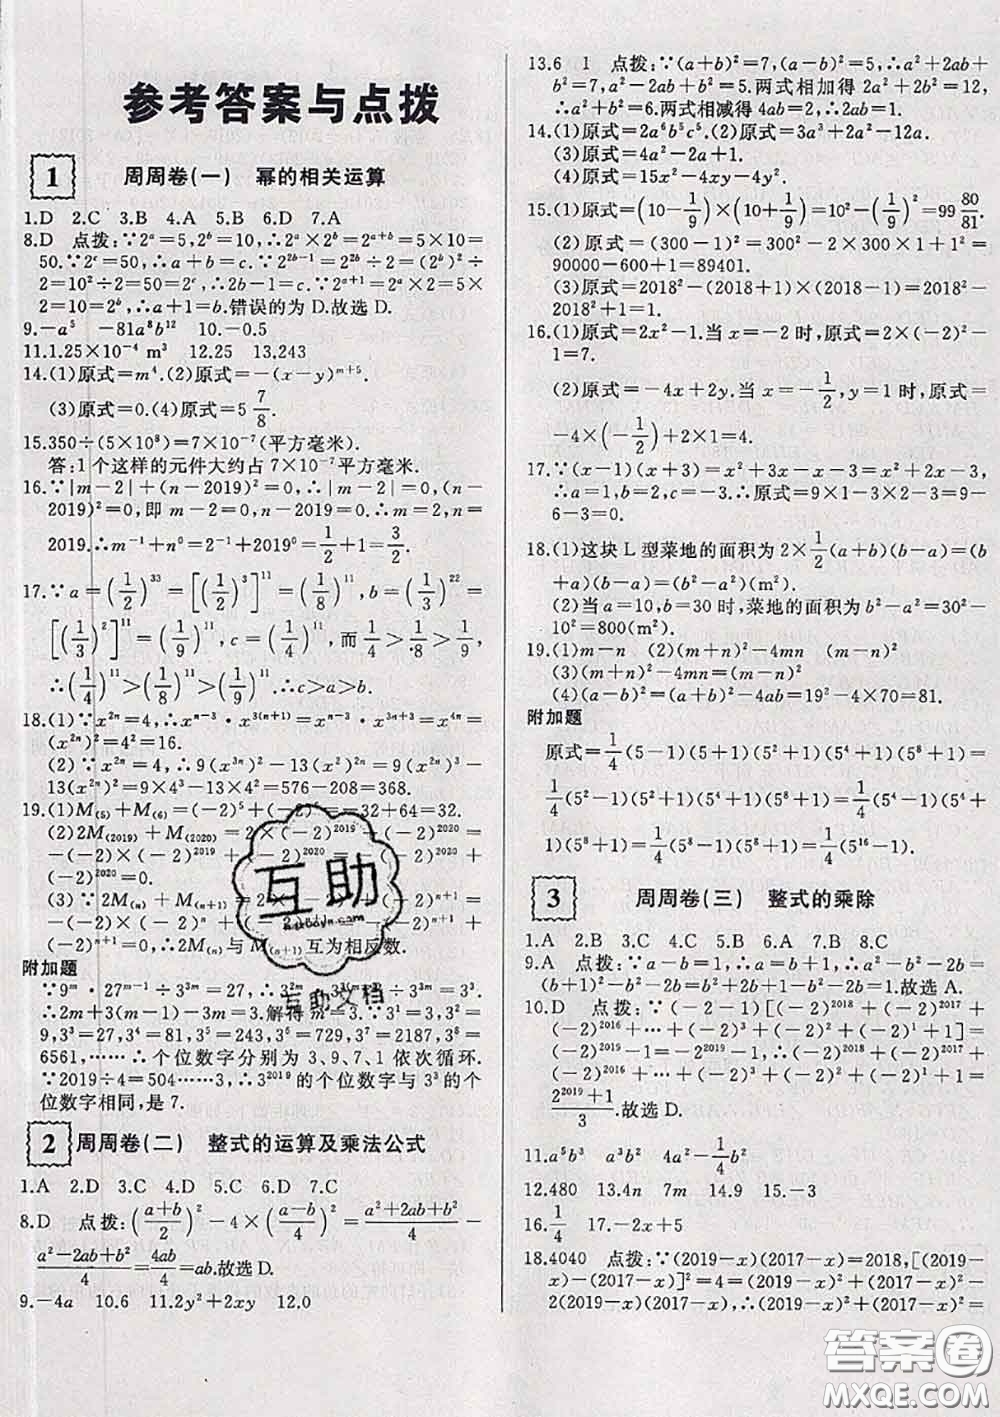 参考答案与点拨
1 周周卷(一) 幂的相关运算
1.D 2.C 3.B 4.A 5.B 6.D 7.A
8.D 点拨:∵2^a=5,2^b=10,∴2^a×2^b=2^(a+b)=5×10=
50.∵2^c=50,∴a+b=c.∵2^(2b-1)=2^(2b)÷2=(2^b)^2÷
2=10^2÷2=50=2^c,∴2b-1=c.∵2^(a+1)=2^a×2=5×
2=10=2^b,∴a+1=b.错误的为 D.故选 D.
9.-a^5 -81a^8b^12 10.-0.5
11.1.25×10^-4 m³ 12.25 13.243
14.(1)原式=m^4.(2)原式=-(x-y)^(m+5).
(3)原式=0.(4)原式=5 7/8.
15.350÷(5×10^8)=7×10^-7(平方毫米).
答:1个这样的元件大约占7×10^-7平方毫米.
16.∵|m-2|+(n-2019)²=0,∴|m-2|=0,(n-
2019)²=0,即m-2=0,n-2019=0.∴m=2,n=
2019.∴m^-1+n^0=2^-1+2019^0=1/2+1=3/2.
17.∵a=(1/2)^33=[(1/2)^3]^11=(1/8)^11,b=(1/3)^22=
[(1/3)^2]^11=(1/9)^11,c=(1/4)^11,而1/4>1/8>1/9,
∴(1/4)^11>(1/8)^11>(1/9)^11.∴c>a>b.
18.(1)∵x^(2n)=4,∴x^(n-3)·x^(3(n+1))=x^(n-3)·x^(3n+3)=x^(4n)=
(x^(2n))²=4²=16.
(2)∵x^(2n)=4,∴9(x^(3n))²-13(x²)^(2n)=9(x^(2n))³-
13(x^(2n))²=9×4³-13×4²=576-208=368.
19.(1)M(5)+M(6)=(-2)^5+(-2)^6=-32+64=32.
(2)2M(2019)+M(2020)=2×(-2)^2019+(-2)^2020=
-(-2)×(-2)^2019+(-2)^2020=-(-2)^2020+(-2)^2020=0.
(3)∵2M(n)=-(-2)×(-2)^n=-(-2)^(n+1),M(n+1)=(-2)^(n+1),∴2M(n)+M(n+1)=-(-2)^(n+1)+
(-2)^(n+1)=0.∴2M(n)与M(n+1)互为相反数.
附加题
∵9^m·27^(m-1)÷3^(3m)=27,∴3^(2m)×3^(3(m-1))÷3^(3m)=3³.
∴2m+3(m-1)-3m=3.解得m=3.∵3^1=3,3^2=
9,3^3=27,3^4=81,3^5=243,3^6=729,3^7=2187,3^8=
6561,……∴个位数字分别为3、9、7、1依次循环.
∵2019÷4=504……3,∴3^2019的个位数字与3³的个
位数字相同,是7.
2 周周卷(二) 整式的运算及乘法公式
1.A 2.D 3.C 4.D 5.C 6.D 7.C
8.D 点拨:((a+b)/2)²-4×((a-b)/4)²=(a²+2ab+b²)/4-
(a²-2ab+b²)/4=4ab/4=ab.故选 D.
9.-4a 10.6 11.2y²+2xy 12.0
13.6 1 点拨:∵(a+b)²=7,(a-b)²=5,∴a²+2ab+
b²=7,a²-2ab+b²=5.两式相加得2a²+2b²=12,
∴a²+b²=6.两式相减得4ab=2,∴4a²b²=1.
14.(1)原式=2a^6b^5c^5.(2)原式=3a³+2a²-12a.
(3)原式=4a²-1.
(4)原式=15x²-4xy-4y².
15.(1)原式=(10-1/9)×(10+1/9)=10²-(1/9)²=99 80/81.
(2)原式=(300-1)²=300²-2×300×1+1²=
90000-600+1=89401.
(3)原式=2018²-(2018+1)×(2018-1)=2018²-
2018²+1=1.
16.(1)原式=2x²-1.当x=-2时,原式=2×(-2)²-
1=7.
(2)原式=-4x+2y.当x=-1/2,y=1时,原式=
-4×(-1/2)+2×1=4.
17.∵(x-1)(x+3)=x²+3x-x-3=x²+2x-3,
∴a=1,b=2,c=-3.∴原式=9×1-3×2-3=9-
6-3=0.
18.(1)这块 L 型菜地的面积为2×1/2(a+b)(b-a)=(b
+a)(b-a)=(b²-a²)(m²).
(2)当a=10,b=30时,菜地的面积为b²-a²=30²-
10²=800(m²).
19.(1)m-n (2)(m+n)²-4mn (m-n)²
(3)(m+n)²-4mn=(m-n)²
(4)(a-b)²=(a+b)²-4ab=19²-4×70=81.
附加题
原式=1/4(5-1)(5+1)(5²+1)(5^4+1)(5^8+1)=
1/4(5²-1)(5²+1)(5^4+1)(5^8+1)=1/4(5^4-1)(5^4+
1)(5^8+1)=1/4(5^8-1)(5^8+1)=1/4(5^16-1).
3 周周卷(三) 整式的乘除
1.A 2.B 3.C 4.C 5.B 6.A 7.B 8.C
9.A 点拨:∵a-b=1,∴a=b+1,∴a²-b²-2b=
(b+1)²-b²-2b=b²+2b+1-b²-2b=1.故选 A.
10.D 点拨:∵(-2-1)[(-2)^2018+(-2)^2017+
(-2)^2016+…+(-2)³+(-2)²+(-2)^1+1]=
(-2)^2019-1=-2^2019-1,∴(-2)^2018+(-2)^2017+
(-2)^2016+…+(-2)³+(-2)²+(-2)+1=
(2^2019+1)/3.故选 D.
11.a^5b^3 a^3b^2 4a²-1/4b²
12.480 13.4n 7m 14.9 15.-3
16.1/4 17.-2x+5
18.4040 点拨:∵(2019-x)(2017-x)=2018,[(2019
-x)-(2017-x)]²=4=(2019-x)²+(2017-x)²-
2(2019-x)(2017-x),∴(2019-x)²+(2017-x)²=
互助
互助文档
答案圈
MXQE.COM